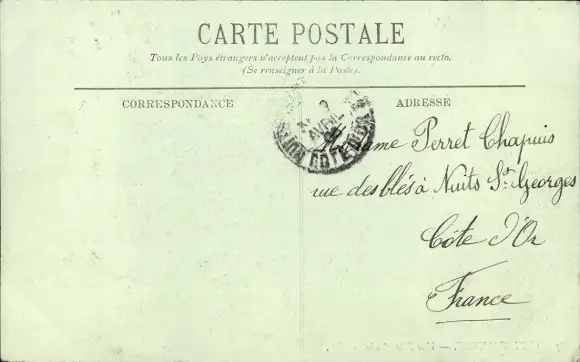 CARTE POSTALE
Tous les Pays étrangers n'acceptent pas la Correspondance au recto.
(Se renseigner à la Poste).
CORRESPONDANCE
ADRESSE
AVRIL
Madame Perret Chapuis
rue des blés à Nuits St. Georges
Côte d'Or
France